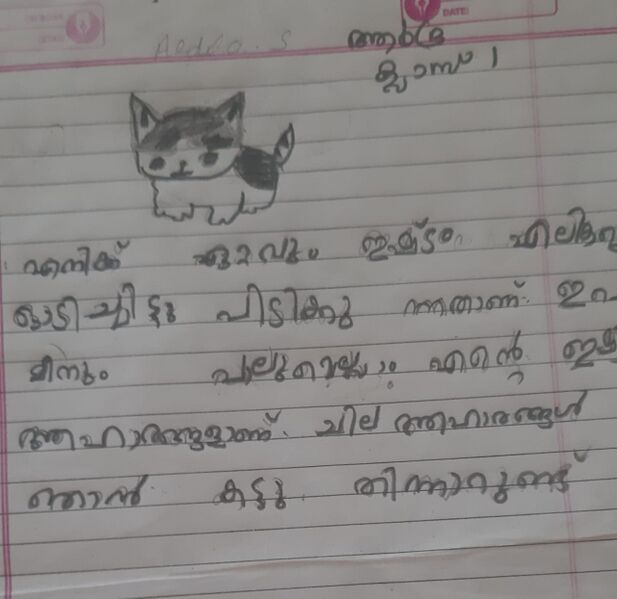 DATE:
Aedra. S ആർദ്ര
ക്ലാസ് 1
എനിക്ക് ഏറ്റവും ഇഷ്ടം എലികളെ
ഓടിച്ചിട്ടു പിടിക്കു ന്നതാണ്. ഇറ
മീനും പാലുമെല്ലാം എന്റെ ഇഷ്ട
ആഹാരങ്ങളാണ്. ചില ആഹാരങ്ങൾ
ഞാൻ കട്ടു തിന്നാറുണ്ട്